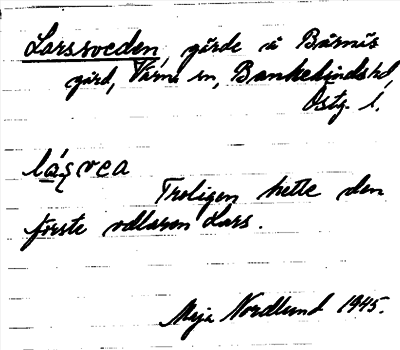 Larssveden, gärde å Bärnäs
gård, Värna sn, Bankekinds hd,
Östg. l.
lásvea
Troligen hette den
förste odlaren Lars.
Maja Nordlund 1945.